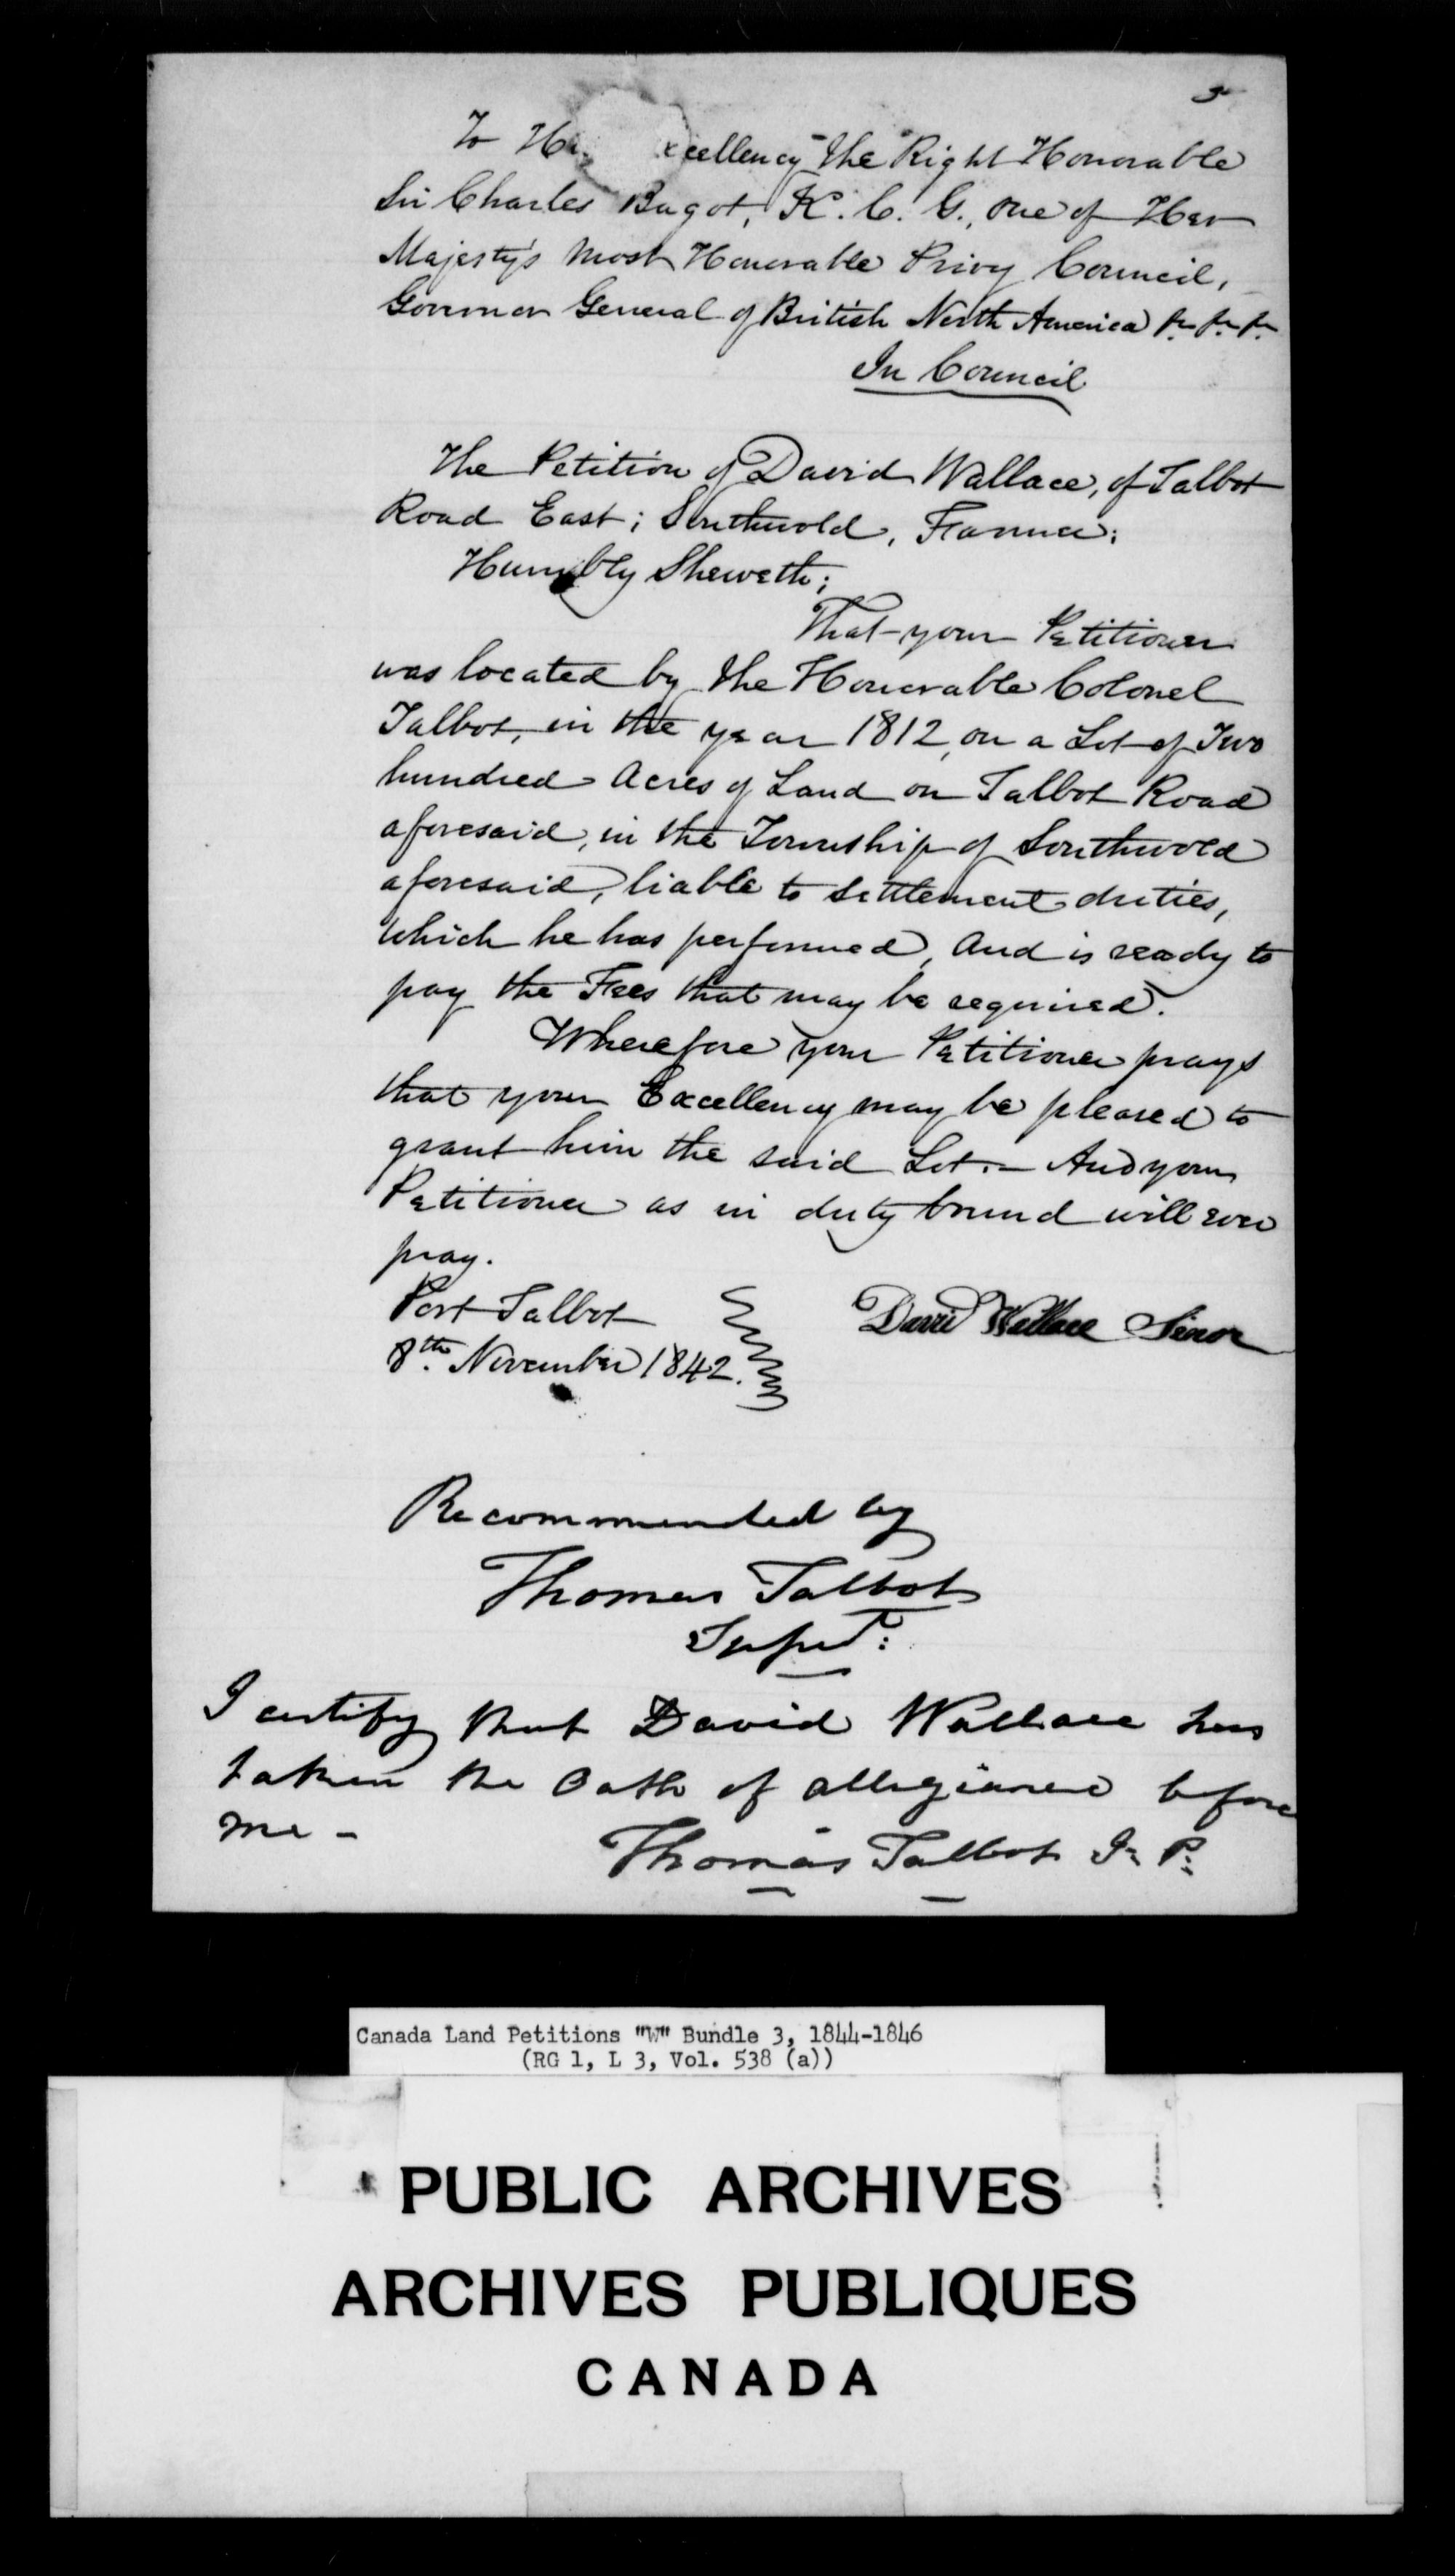 To His xcellency the Right Honorable
Sir Charles Bagot, K. C. G., one of Her
Majesty's Most Honorable Privy Council,
Governor General of British North America &c. &c. &c.
In Council
The Petition of David Wallace, of Talbot
Road East; Southwold, Farmer;
Humbly Sheweth;
That your Petitioner
was located by the Honorable Colonel
Talbot, in the year 1812, on a Lot of Two
hundred Acres of Land on Talbot Road
aforesaid, in the Township of Southwold
aforesaid, liable to settlement duties,
which he has performed, And is ready to
pay the Fees that may be required.
Wherefore your Petitioner prays
that your Excellency may be pleased to
grant him the said Lot. – And your
Petitioner as in duty bound will ever
pray.
Port Talbot
8th November 1842.
David Wallace Sinor
Recommended by
Thomas Talbot
Supt:
I certify that David Wallace has
taken the Oath of allegiance before
me -
Thomas Talbot J. P.
Canada Land Petitions "W" Bundle 3, 1844-1846
(RG 1, L 3, Vol. 538 (a))
PUBLIC ARCHIVES
ARCHIVES PUBLIQUES
CANADA